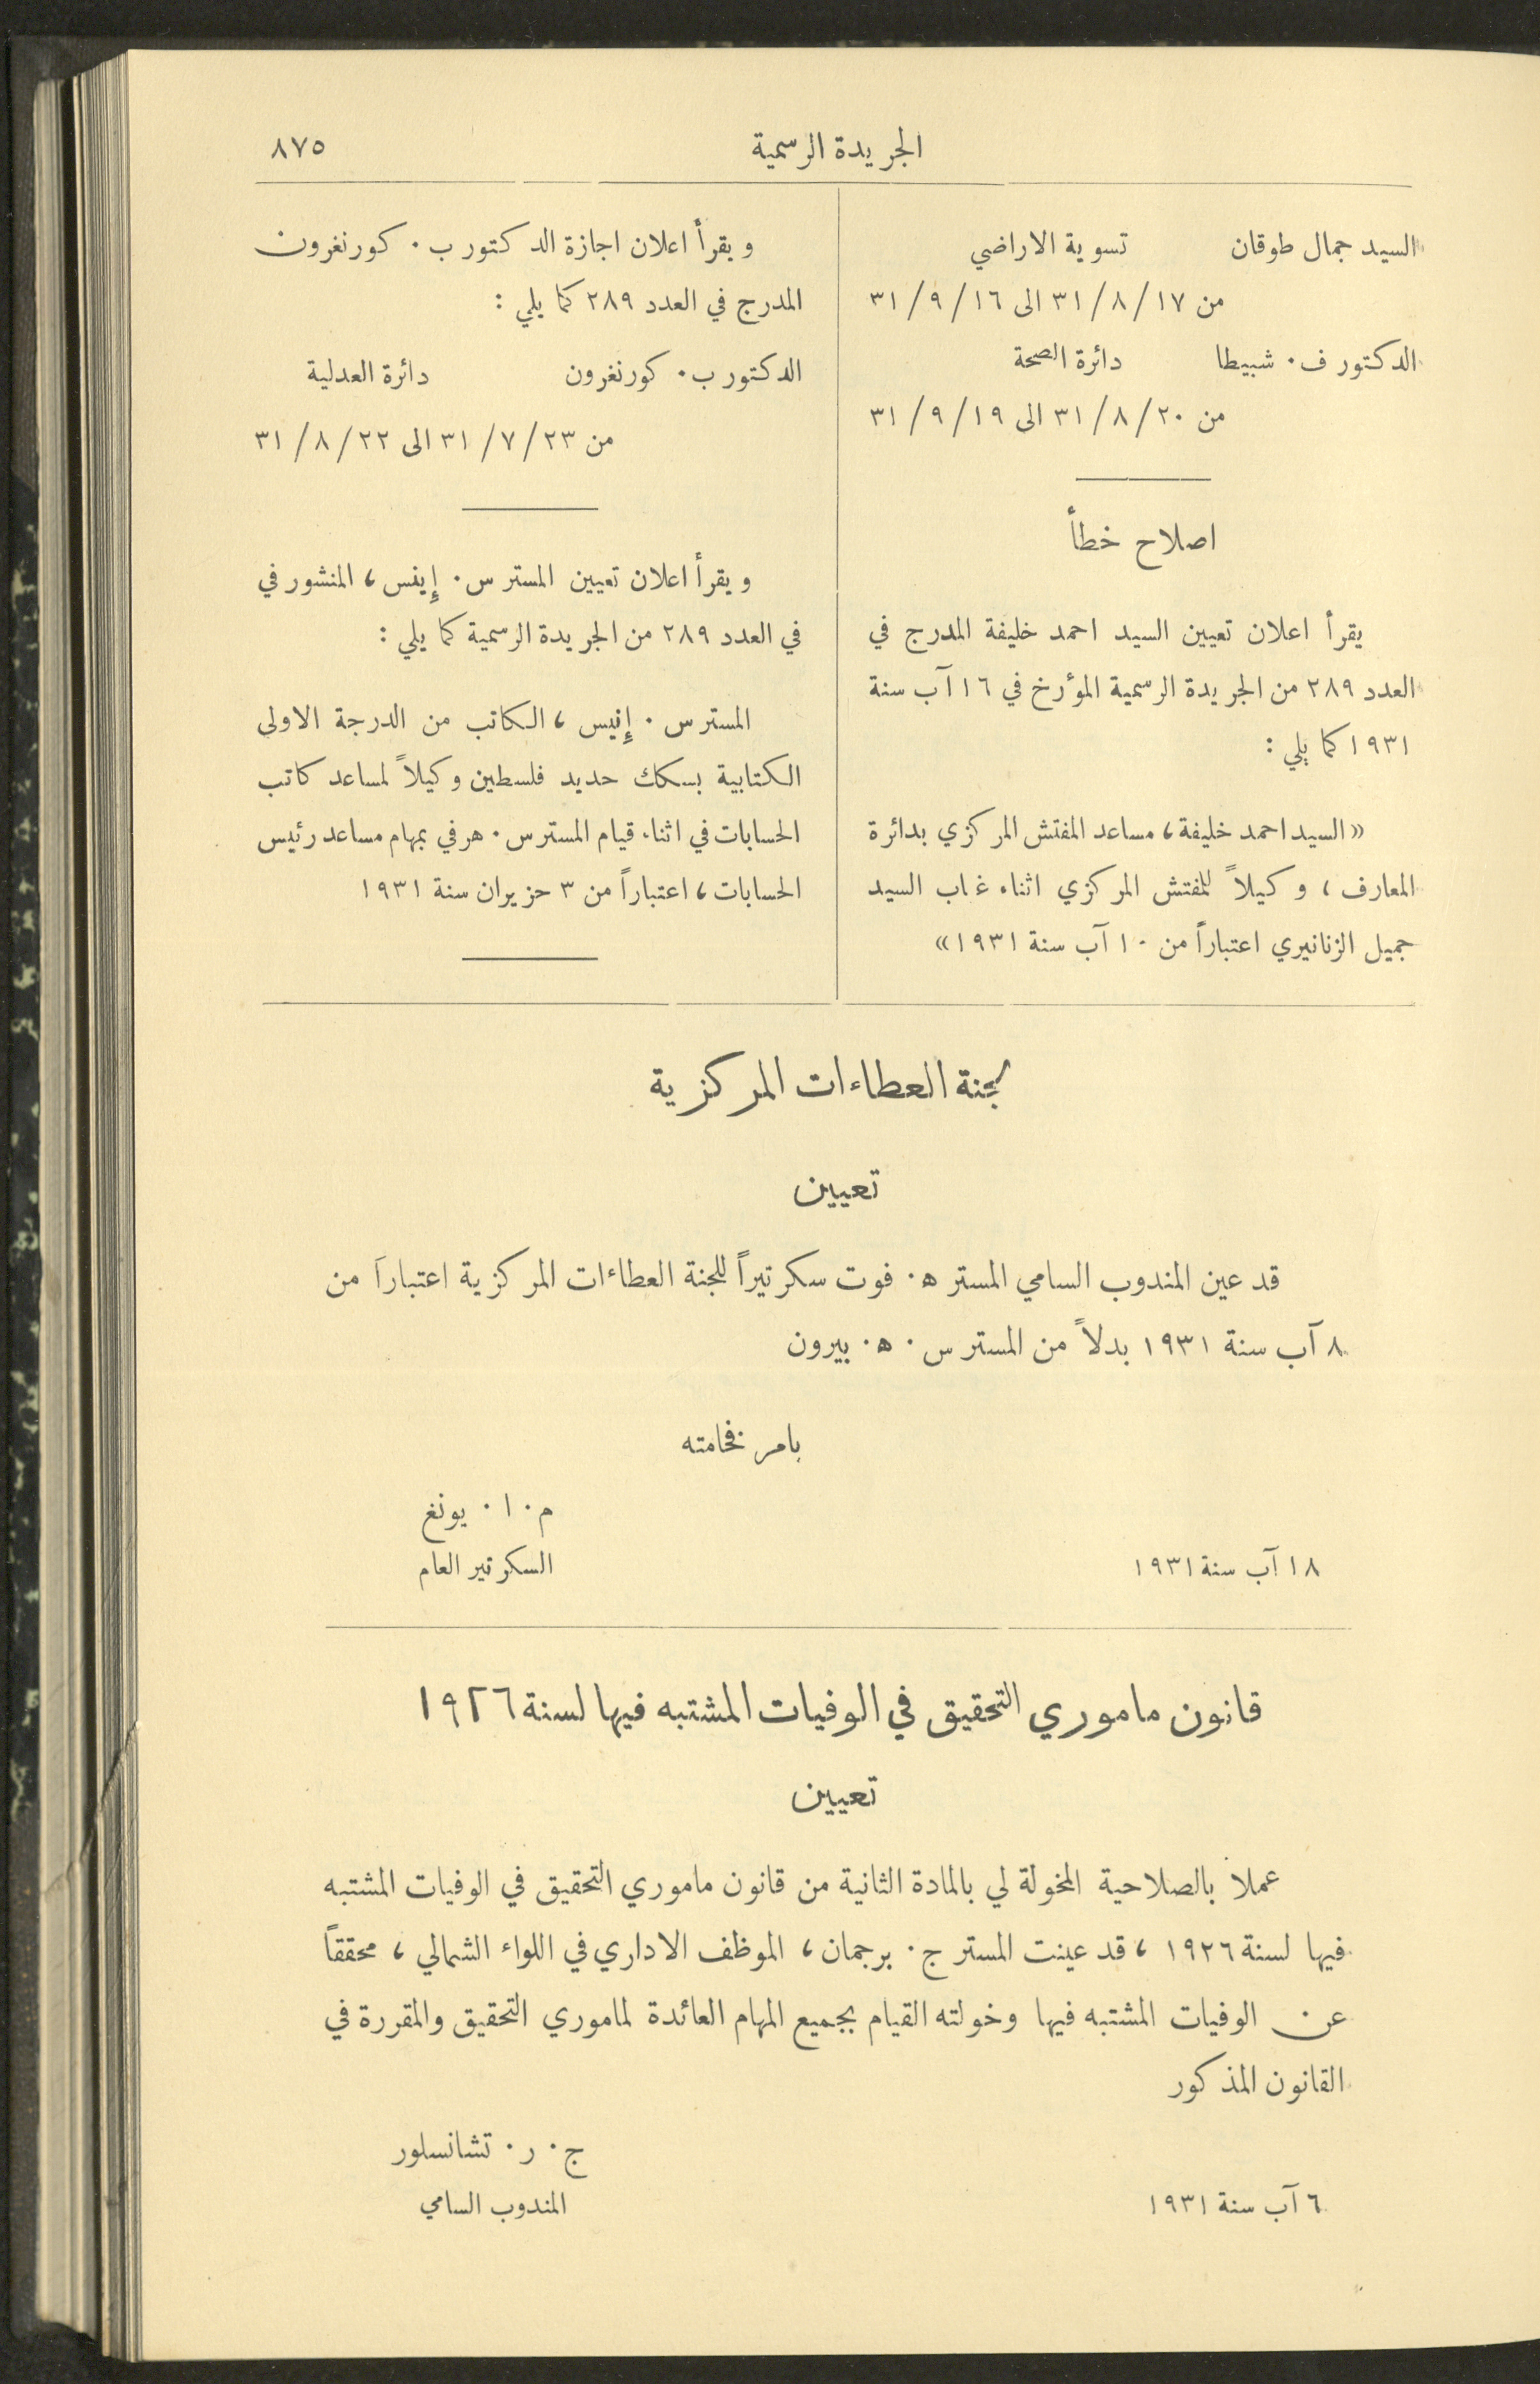 الجريدة الرسمية ٨٧٥
السيد جمال طوقان تسوية الاراضي
من ١٧/٨/٣١ الى ١٦/٩/٣١
الدكتور ف. شبيطا دائرة الصحة
من ٢٠/٨/٣١ الى ١٩/٩/٣١
اصلاح خطأ
يقرأ اعلان تعيين السيد احمد خليفة المدرج في
العدد ٢٨٩ من الجريدة الرسمية المؤرخ في ١٦ آب سنة
١٩٣١ كما يلي :
«السيد احمد خليفة، مساعد المفتش المركزي بدائرة
المعارف، وكيلاً للمفتش المركزي اثناء غاب السيد
جميل الزنانيري اعتباراً من ١٠ آب سنة ١٩٣١»
ويقرأ اعلان اجازة الدكتور ب. كورنغرون
المدرج في العدد ٢٨٩ كما يلي :
الدكتور ب. كورنغرون دائرة العدلية
من ٢٣/٧/٣١ الى ٢٢/٨/٣١
ويقرأ اعلان تعيين المستر س. إينس، المنشور في
في العدد ٢٨٩ من الجريدة الرسمية كما يلي :
المستر س. إنيس، الكاتب من الدرجة الاولى
الكتابية بسكك حديد فلسطين وكيلاً لمساعد كاتب
الحسابات في اثناء قيام المستر س. هرفي بمهام مساعد رئيس
الحسابات، اعتباراً من ٣ حزيران سنة ١٩٣١
لجنة العطاءات المركزية
تعيين
قد عين المندوب السامي المستر ه. فوت سكرتيراً للجنة العطاءات المركزية اعتباراً من
٨ آب سنة ١٩٣١ بدلاً من المستر س. ه. بيرون
بامر فخامته
م. ا. يونغ
١٨ آب سنة ١٩٣١ السكرتير العام
قانون ماموري التحقيق في الوفيات المشتبه فيها لسنة ١٩٢٦
تعيين
عملا بالصلاحية المخولة لي بالمادة الثانية من قانون ماموري التحقيق في الوفيات المشتبه
فيها لسنة ١٩٢٦، قد عينت المستر ج. برجمان، الموظف الاداري في اللواء الشمالي، محققاً
عن الوفيات المشتبه فيها وخولته القيام بجميع المهام العائدة لماموري التحقيق والمقررة في
القانون المذكور
ج. ر. تشانسلور
٦ آب سنة ١٩٣١ المندوب السامي